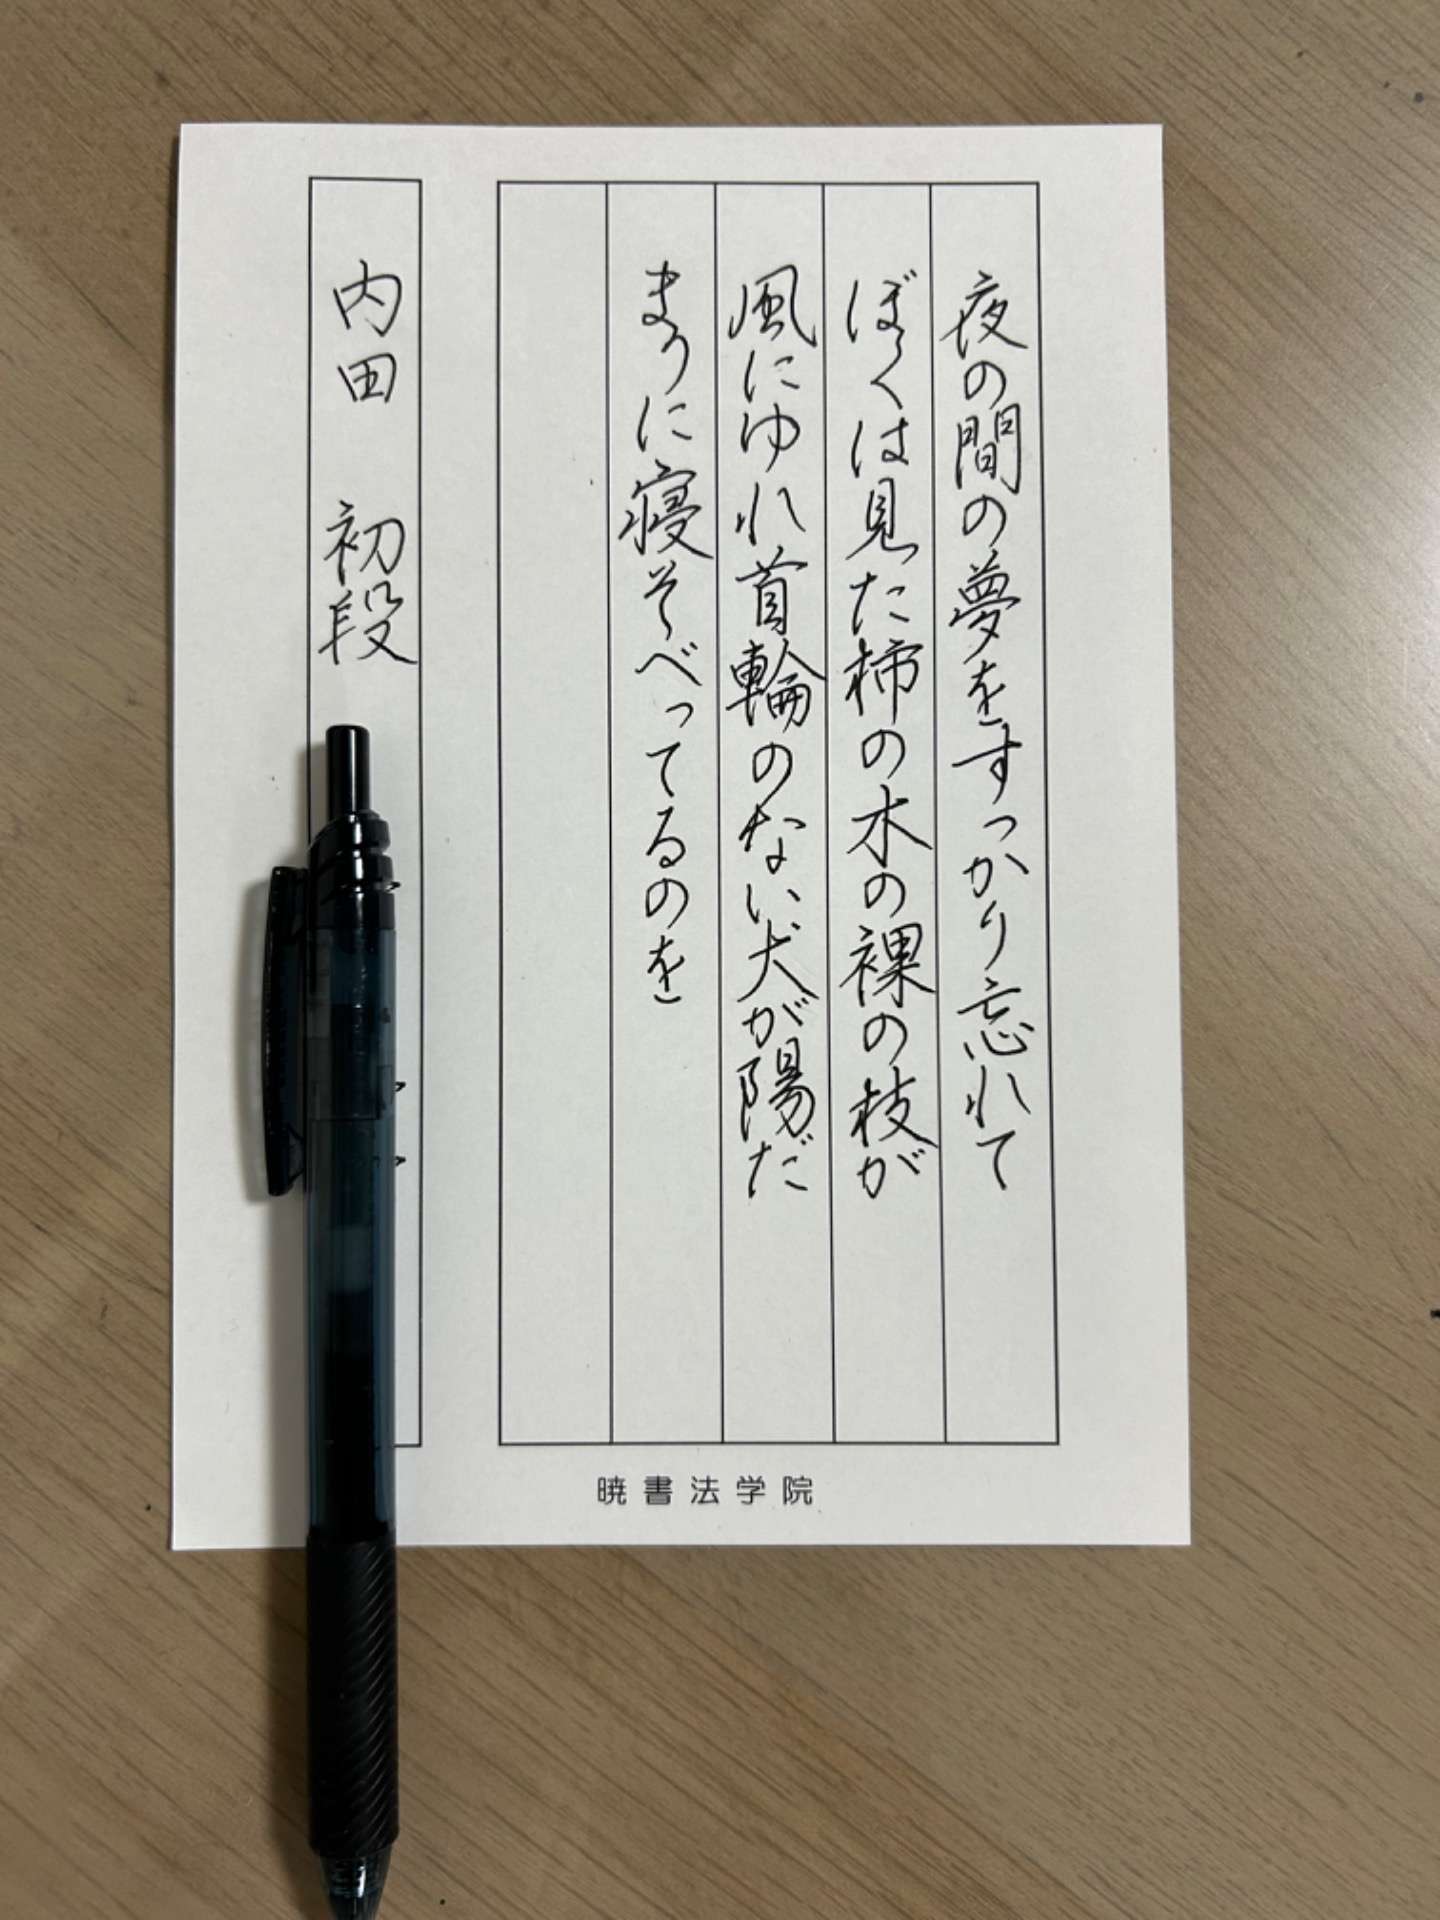 夜の間の夢をすっかり忘れて
ぼくは見た柿の木の裸の枝が
風にゆれ首輪のない犬が陽だ
まりに寝そべってるのを
内田 初段
暁書法学院